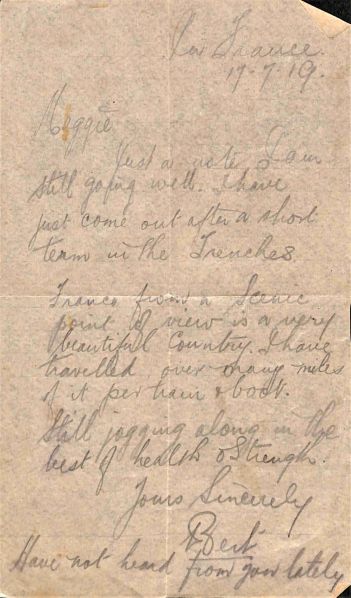 In France.
17.7.19.
Maggie
Just a note I am
still going well. I have
just come out after a short
team in the Trenches
France from a Scenic
point of view is a very
beautiful Country. I have
travelled over many miles
of it per train & boot.
Still jogging along in the
best of health & Strength.
Yours Sincerely
Bert
Have not heard from you lately